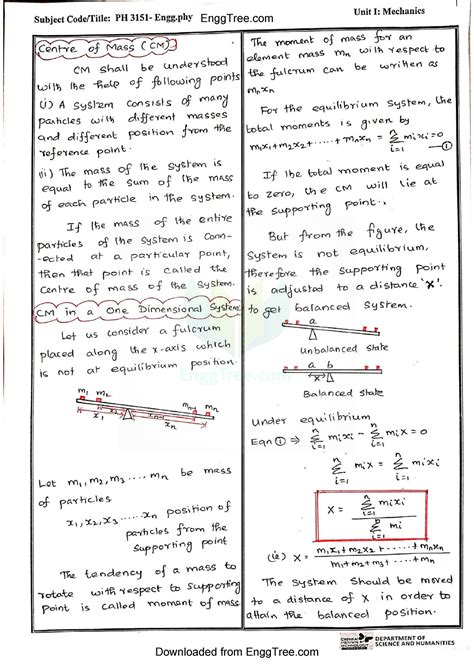 Subject Code/Title: PH 3151- Engg.phy EnggTree.com Unit I: Mechanics
Centre of Mass (CM)
CM shall be understood
with the help of following points
(i) A system consists of many
particles with different masses
and different position from the
reference point.
(ii) The mass of the system is
equal to the sum of the mass
of each particle in the system.
If the mass of the entire
particles of the system is Conn-
-ected at a particular point,
then that point is called the
Centre of mass of the system.
CM in a One Dimensional System
Let us consider a fulcrum
placed along the x-axis which
is not at equilibrium position
m₁ m₂ mₙ₋₁ mₙ
x₂ xₙ₋₁
x₁ xₙ
Let m₁, m₂, m₃ ..... mₙ be mass
of particles
x₁, x₂, x₃ ..... xₙ position of
particles from the
supporting point
The tendency of a mass to
rotate with respect to supporting
point is called moment of mass
The moment of mass for an
element mass mₙ with respect to
the fulcrum can be written as
mₙxₙ
For the equilibrium system, the
total moments is given by
m₁x₁+m₂x₂+......+mₙxₙ = Σⁿᵢ₌₁ mᵢxᵢ=0
①
If the total moment is equal
to zero, the CM will lie at
the supporting point.
But from the figure, the
system is not equilibrium,
therefore the supporting point
is adjusted to a distance 'x'.
to get balanced system.
a
Unbalanced state
a b
x
Balanced state
Under equilibrium
Eqn ① ⇒ Σⁿᵢ₌₁ mᵢxᵢ - Σⁿᵢ₌₁ mᵢx = 0
Σⁿᵢ₌₁ mᵢx = Σⁿᵢ₌₁ mᵢxᵢ
x = Σⁿᵢ₌₁ mᵢxᵢ / Σⁿᵢ₌₁ mᵢ
(ie) x = m₁x₁+m₂x₂+......+mₙxₙ / m₁+m₂+m₃+....+mₙ
The system should be moved
to a distance of x in order to
attain the balanced position.
EnggTree.com
DEPARTMENT OF
SCIENCE AND HUMANITIES
Downloaded from EnggTree.com